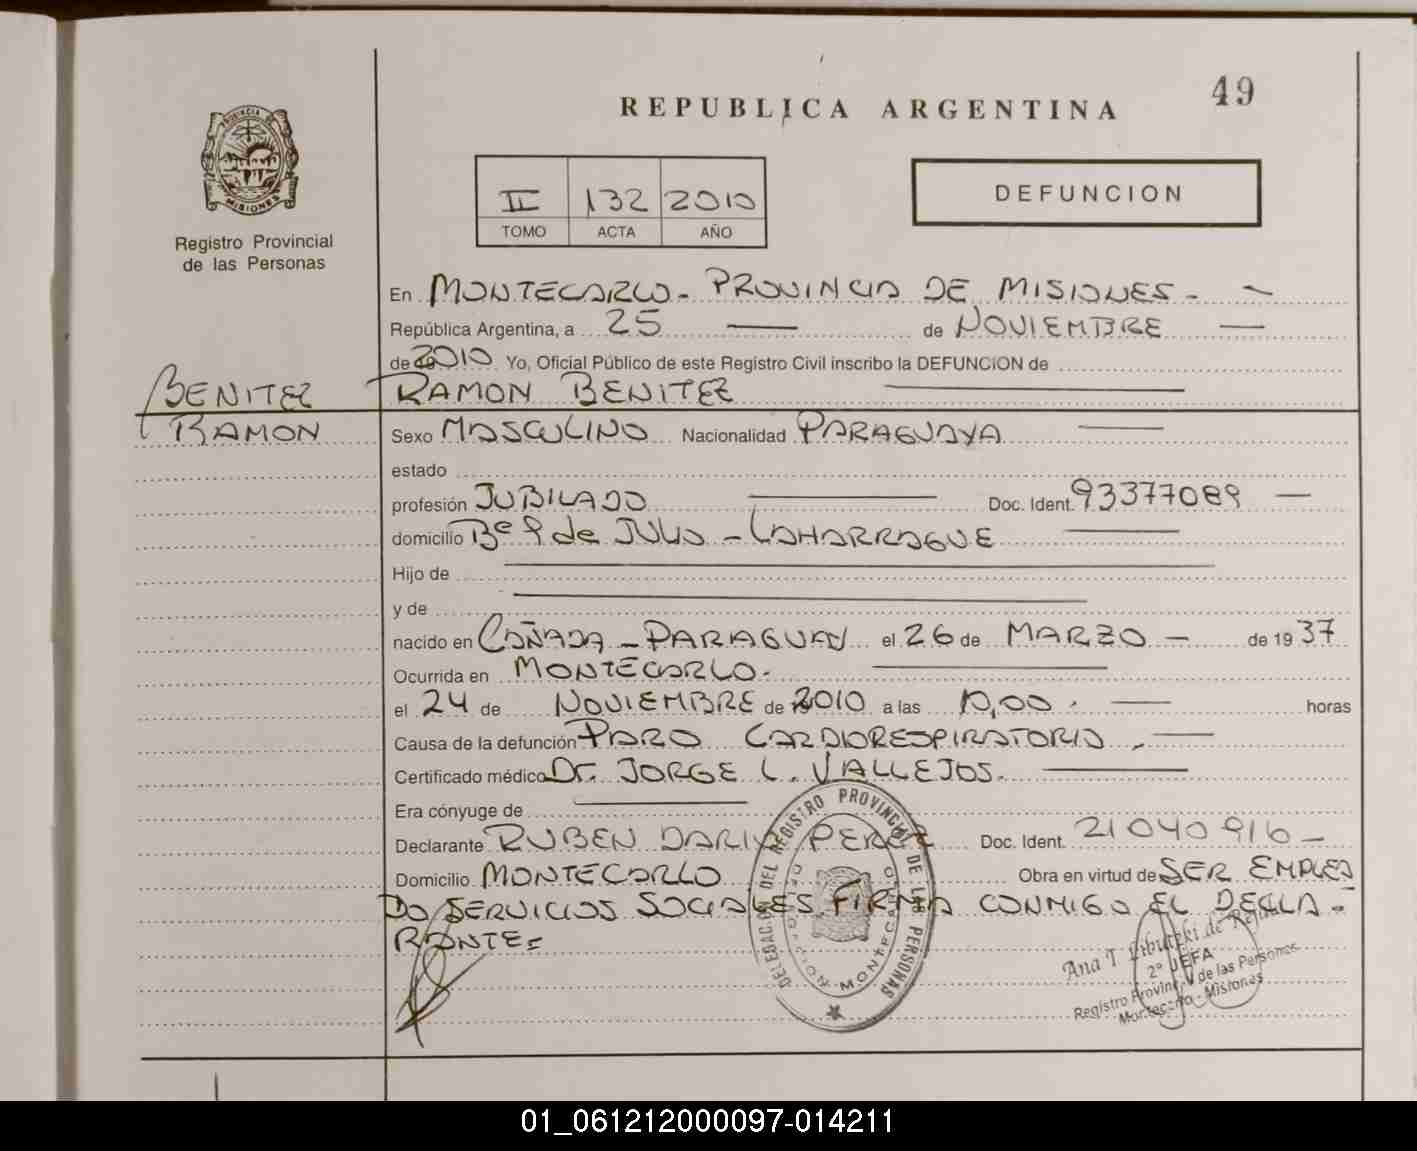 49
REPUBLICA ARGENTINA
PROVINCIA DE
MISIONES
Registro Provincial
de las Personas
II 132 2010
TOMO ACTA AÑO
DEFUNCION
En MONTECARLO - PROVINCIA DE MISIONES -
República Argentina, a 25 de NOVIEMBRE
de 2010 Yo, Oficial Público de este Registro Civil inscribo la DEFUNCION de
BENITEZ RAMON BENITEZ
RAMON
Sexo MASCULINO Nacionalidad PARAGUAYA
estado
profesión JUBILADO Doc. Ident. 93377089
domicilio Bº 9 de JULIO - LAHARRAGUE
Hijo de
y de
nacido en CAÑADA - PARAGUAY el 26 de MARZO - de 19 37
Ocurrida en MONTECARLO.
el 24 de NOVIEMBRE de 2010 a las 10,00 . horas
Causa de la defunción PARO CARDIORESPIRATORIO .
Certificado médico Dr. JORGE L. VALLEJOS.
Era cónyuge de
Declarante RUBEN DARIO PEREZ Doc. Ident. 21040916 -
Domicilio MONTECARLO Obra en virtud de SER EMPLEA
DO SERVICIOS SOCIALES FIRMA CONMIGO EL DECLA -
RANTE -
DELEGACION DEL REGISTRO PROVINCIAL DE LAS PERSONAS
MONTECARLO
Ana T. de
2º JEFA
Registro Provincial de las Personas
Montecarlo - Misiones
01_061212000097-014211